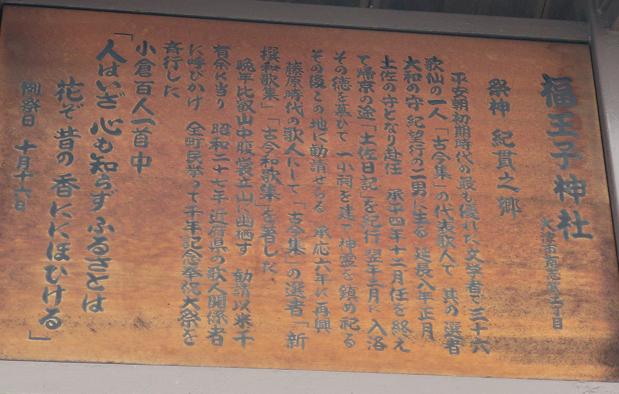 福王子神社
大津市南志賀一丁目
祭神 紀貫之卿
平安朝初期時代の最も優れた文学者で三十六
歌仙の一人「古今集」の代表歌人で 其の選者
大和の守 紀望行の二男に生る 延長八年正月
土佐の守となり赴任 承平四年十二月任を終え
て帰京の途「土佐日記」を紀行 翌年二月に入洛
その徳を慕ひて 一小祠を建て 神霊を鎮め祀る
その後この地に勧請せらる 承応六年に再興
藤原時代の歌人にして「古今集」の選者「新
撰和歌集」「古今和歌集」を著した
晩年比叡山中腹裳立山に出栖す 勧請以来千
有余に当り 昭和二十七年近府県の歌人関係者
に呼びかけ 全町民挙って千年記念奉祝大祭を
斉行した
小倉百人一首中
「人はいざ 心も知らず ふるさとは
花ぞ 昔の 香ににほひける」
例祭日 十月十六日